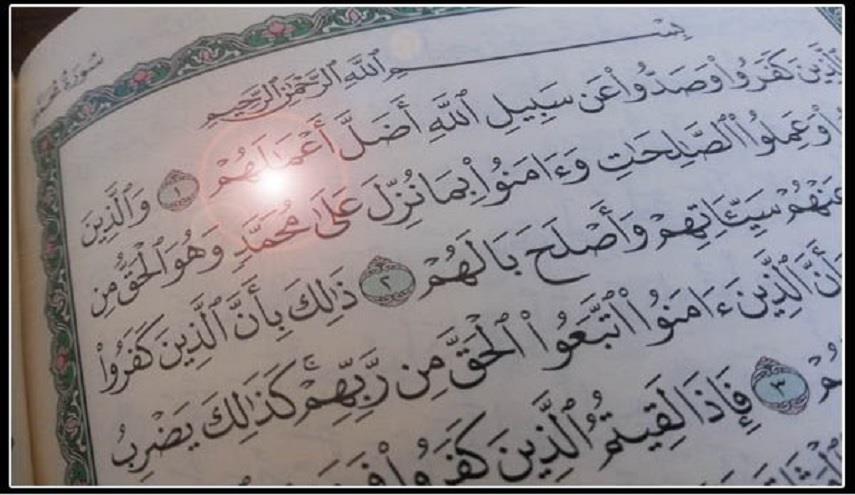 سورة محمد
بِسْمِ ٱللَّهِ ٱلرَّحْمَٰنِ ٱلرَّحِيمِ
ٱلَّذِينَ كَفَرُوا۟ وَصَدُّوا۟ عَن سَبِيلِ ٱللَّهِ أَضَلَّ أَعْمَٰلَهُمْ ١ وَٱلَّذِينَ
وَعَمِلُوا۟ ٱلصَّٰلِحَٰتِ وَءَامَنُوا۟ بِمَا نُزِّلَ عَلَىٰ مُحَمَّدٍ وَهُوَ ٱلْحَقُّ مِن
عَنْهُمْ سَيِّـَٔاتِهِمْ وَأَصْلَحَ بَالَهُمْ ٢ ذَٰلِكَ بِأَنَّ ٱلَّذِينَ كَفَرُوا۟
وَأَنَّ ٱلَّذِينَ ءَامَنُوا۟ ٱتَّبَعُوا۟ ٱلْحَقَّ مِن رَّبِّهِمْ ۚ كَذَٰلِكَ يَضْرِبُ
٣ فَإِذَا لَقِيتُمُ ٱلَّذِينَ كَفَرُوا۟